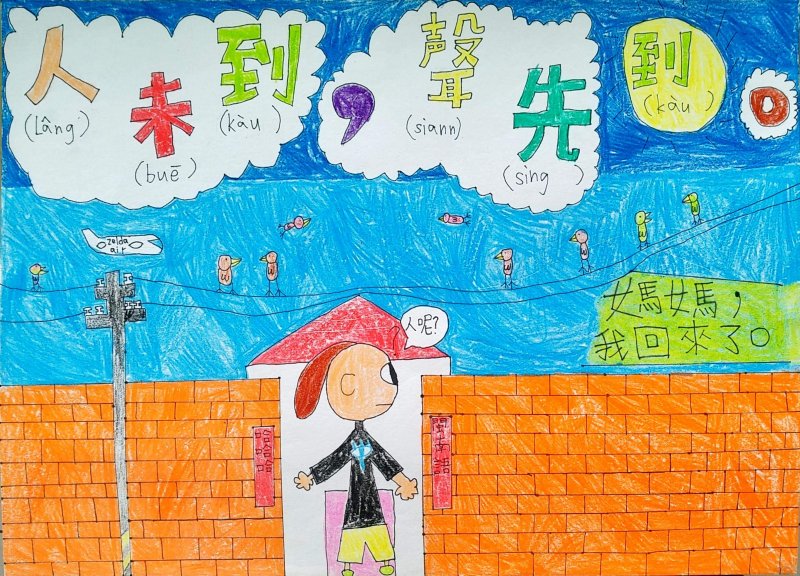 人未到，聲先到。
(Lâng) (buē) (kàu) (siann) (sing) (kàu)
zelda
air
人呢?
媽媽，
我回來了。
哈哈哈
閩南語